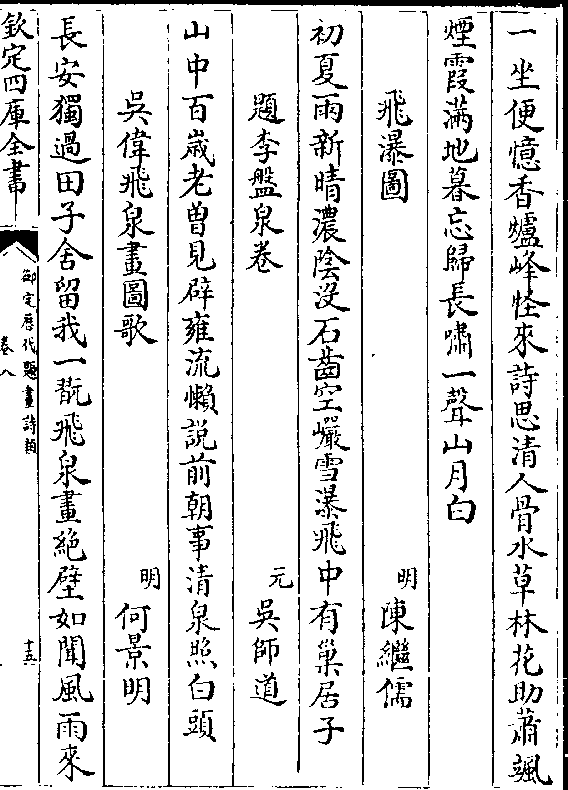 一坐便憶香爐峰怪來詩思清人骨水草林花助蕭颯
煙霞滿地暮忘歸長嘯一聲山月白
飛瀑圖
明 陳繼儒
初夏雨新晴濃陰没石齒空巖雪瀑飛中有巢居子
題李盤泉卷
元 吳師道
山中百歳老曽見辟雍流懶説前朝事清泉照白頭
吳偉飛泉畫圖歌
明 何景明
長安獨過田子舍留我一翫飛泉畫絶壁如聞風雨來
欽定四庫全書
御定歴代題畫詩類
卷八
十五